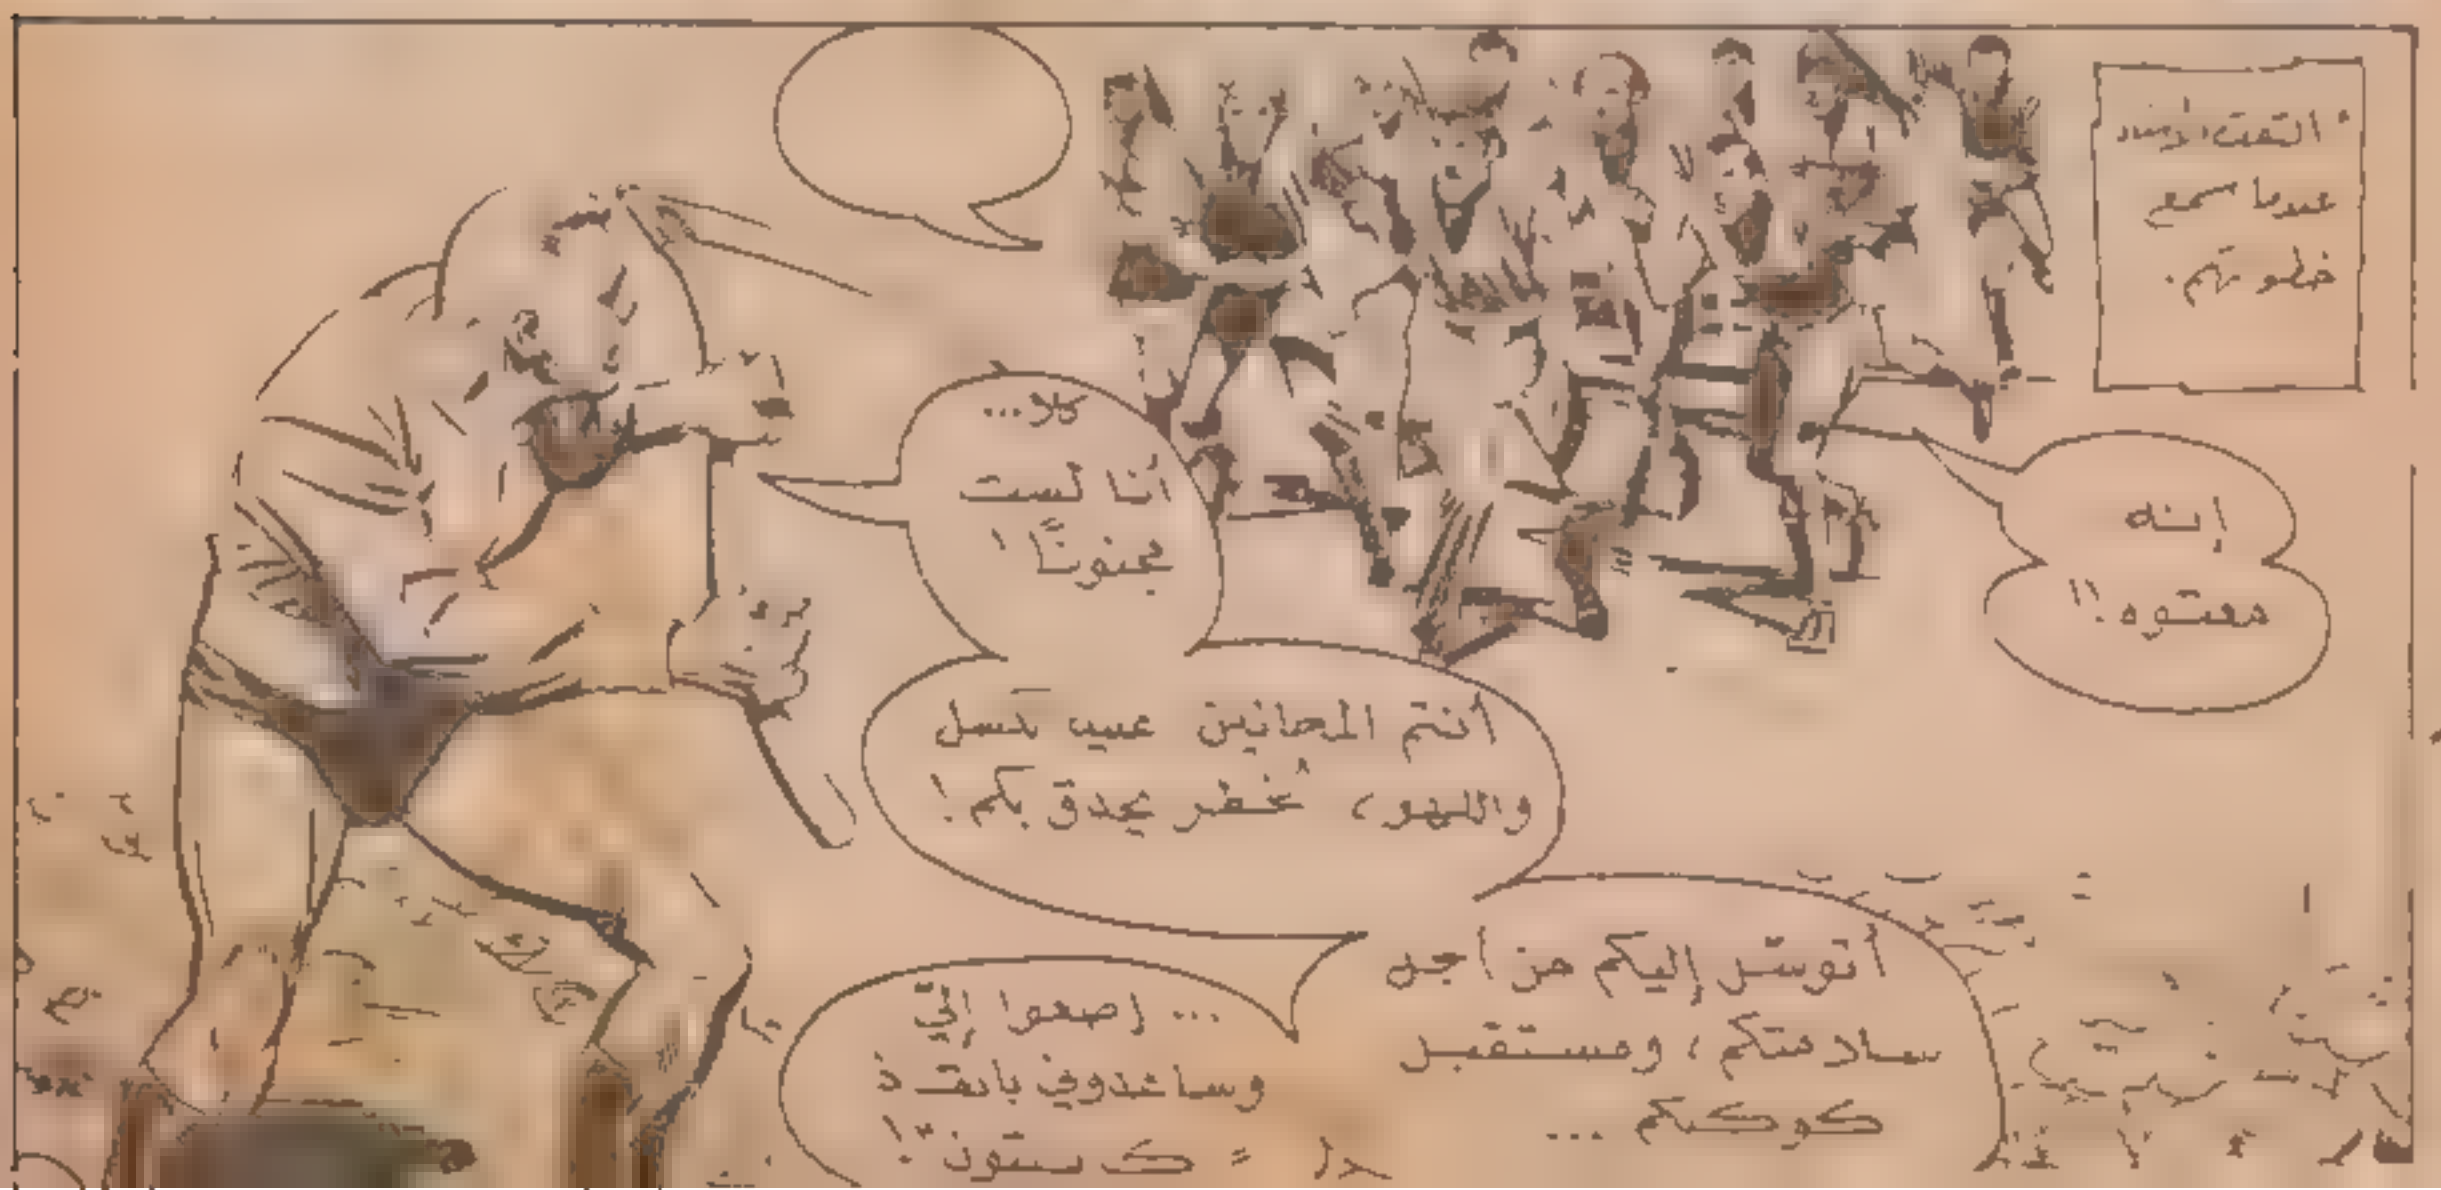 التفت
عندما سمع
خطوتهم.
إنه
معتوه!!
كلا...
أنا لست
مجنونًا!
أنتم المجانين عبيد كسل
واللهو، خطر يحدق بكم!
أتوسّل إليكم من أجل
سلامتكم، ومستقبل
كوكبكم ...
... إصغوا إليّ
وساعدوني بإنقاذ